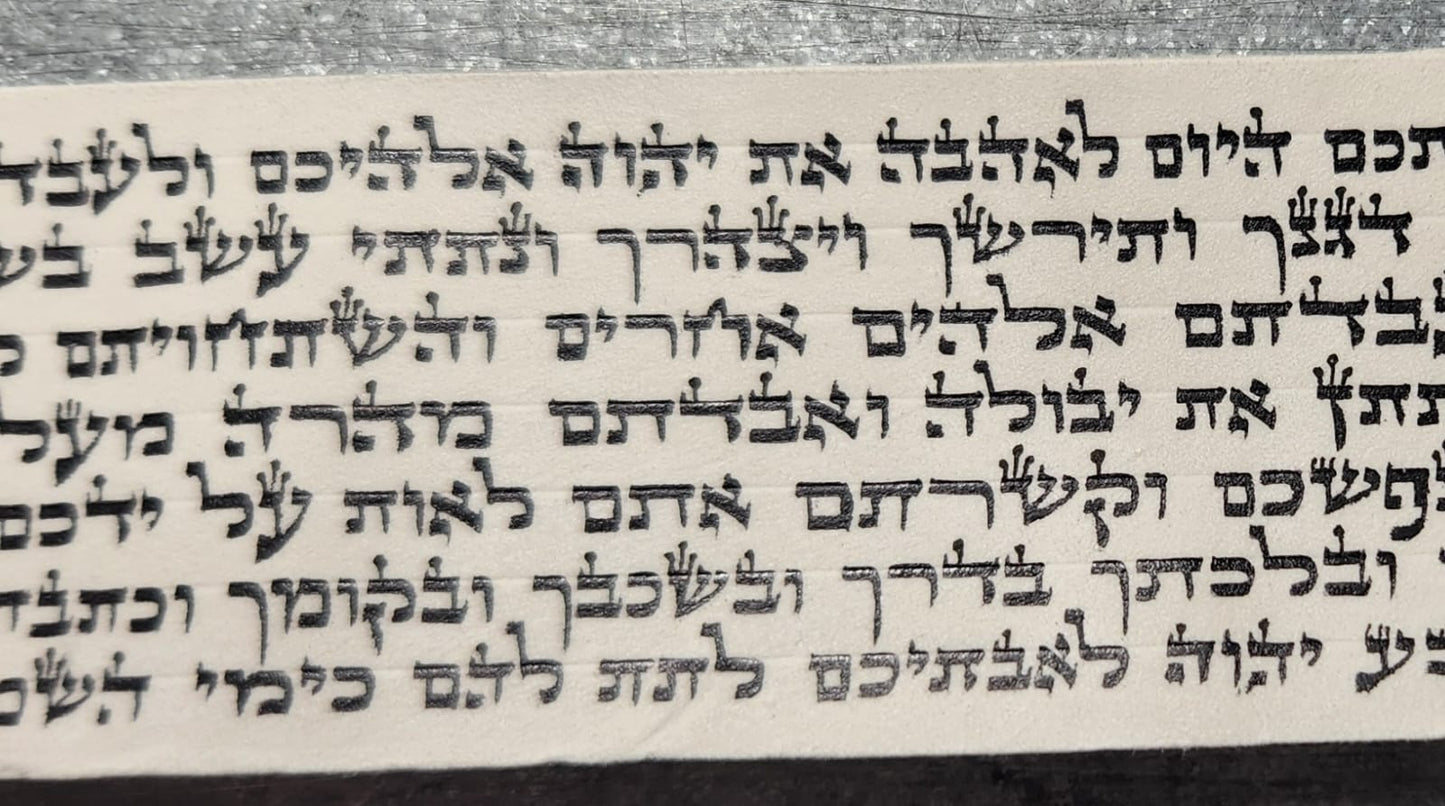 תכם היום לאהבה את יהוה אלהיכם ולעבד
דגנך ותירשך ויצהרך ונתתי עשב בש
בדתם אלהים אחרים והשתחויתם
תתן את יבולה ואבדתם מהרה מעל
פשכם וקשרתם אתם לאות על ידכם
ובלכתך בדרך ובשכבך ובקומך וכתבת
בע יהוה לאבתיכם לתת להם כימי השמ